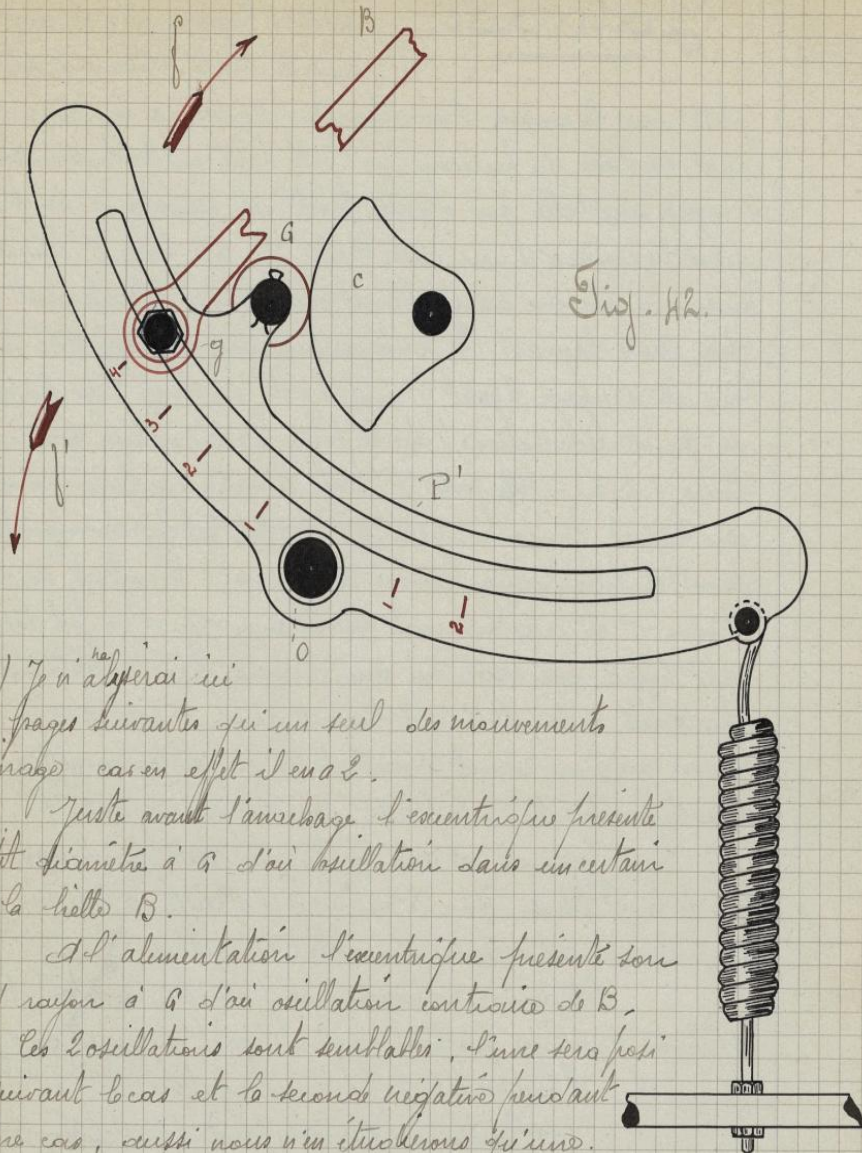 f
B
G
c
Fig. 42.
g
4
3
2
1
f'
P'
1
2
O
) Je n'analyserai ici
pages suivantes qu'un seul des mouvements
nage car en effet il en a 2.
Juste avant l'arrachage l'excentrique présente
it diamètre à G d'où oscillation dans un certain
la bielle B.
A l'alimentation l'excentrique présente son
rayon à G d'où oscillation contraire de B.
Ces 2 oscillations sont semblables, l'une sera posi
uivant le cas et la seconde négative pendant
me cas, aussi nous n'en étudierons qu'une.